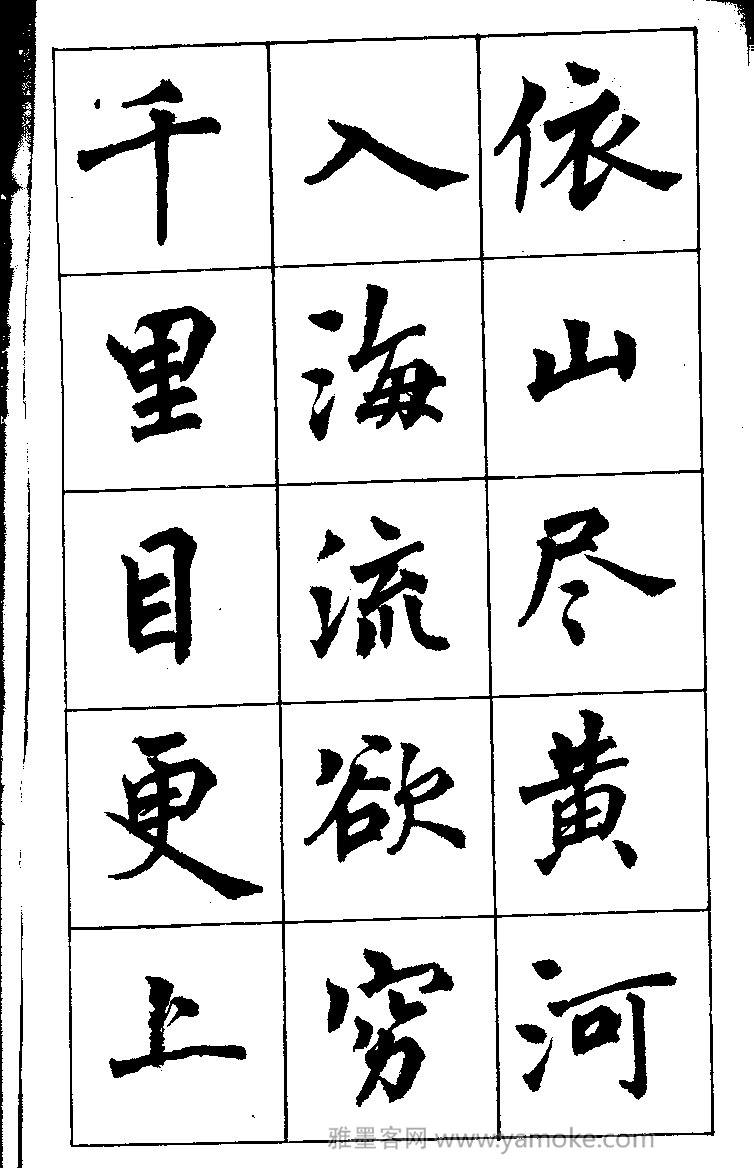 依山尽黄河
入海流欲穷
千里目更上
雅墨客网 www.yamoke.com